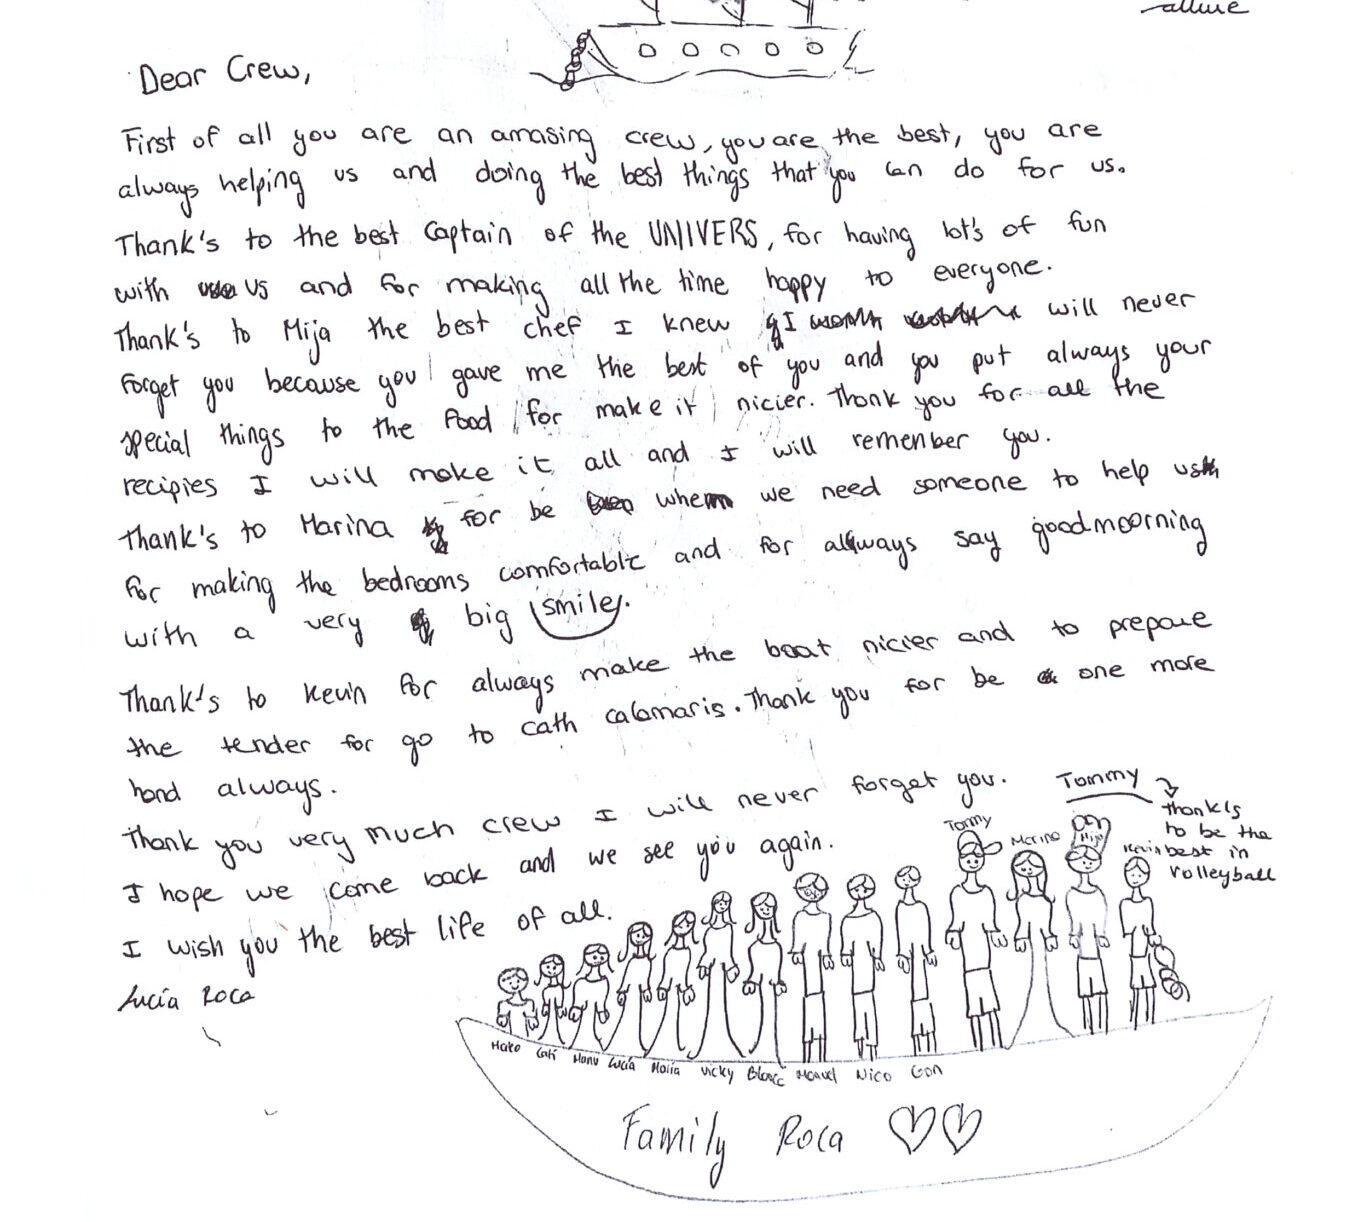 allure
Dear Crew,
First of all you are an amasing crew, you are the best, you are
always helping us and doing the best things that you can do for us.
Thank's to the best Captain of the UNIVERS, for having lot's of fun
with us and for making all the time happy to everyone.
Thank's to Mija the best chef I knew I will never
forget you because you gave me the best of you and you put always your
special things to the food for make it nicier. Thank you for all the
recipies I will make it all and I will remember you.
Thank's to Marina for be when we need someone to help us
for making the bedrooms comfortable and for always say goodmoorning
with a very big smile.
Thank's to Kevin for always make the boat nicier and to prepare
the tender for go to cath calamaris. Thank you for be one more
hand always.
Thank you very much crew I will never forget you.
I hope we come back and we see you again.
I wish you the best life of all.
Lucía Roca
Tommy
Thank's
to be the
best in
volleyball
Tommy
Marina
Mija
Kevin
Mateo Cati Manu Lucía María Vicky Blanca Manuel Nico Gon
Family Roca